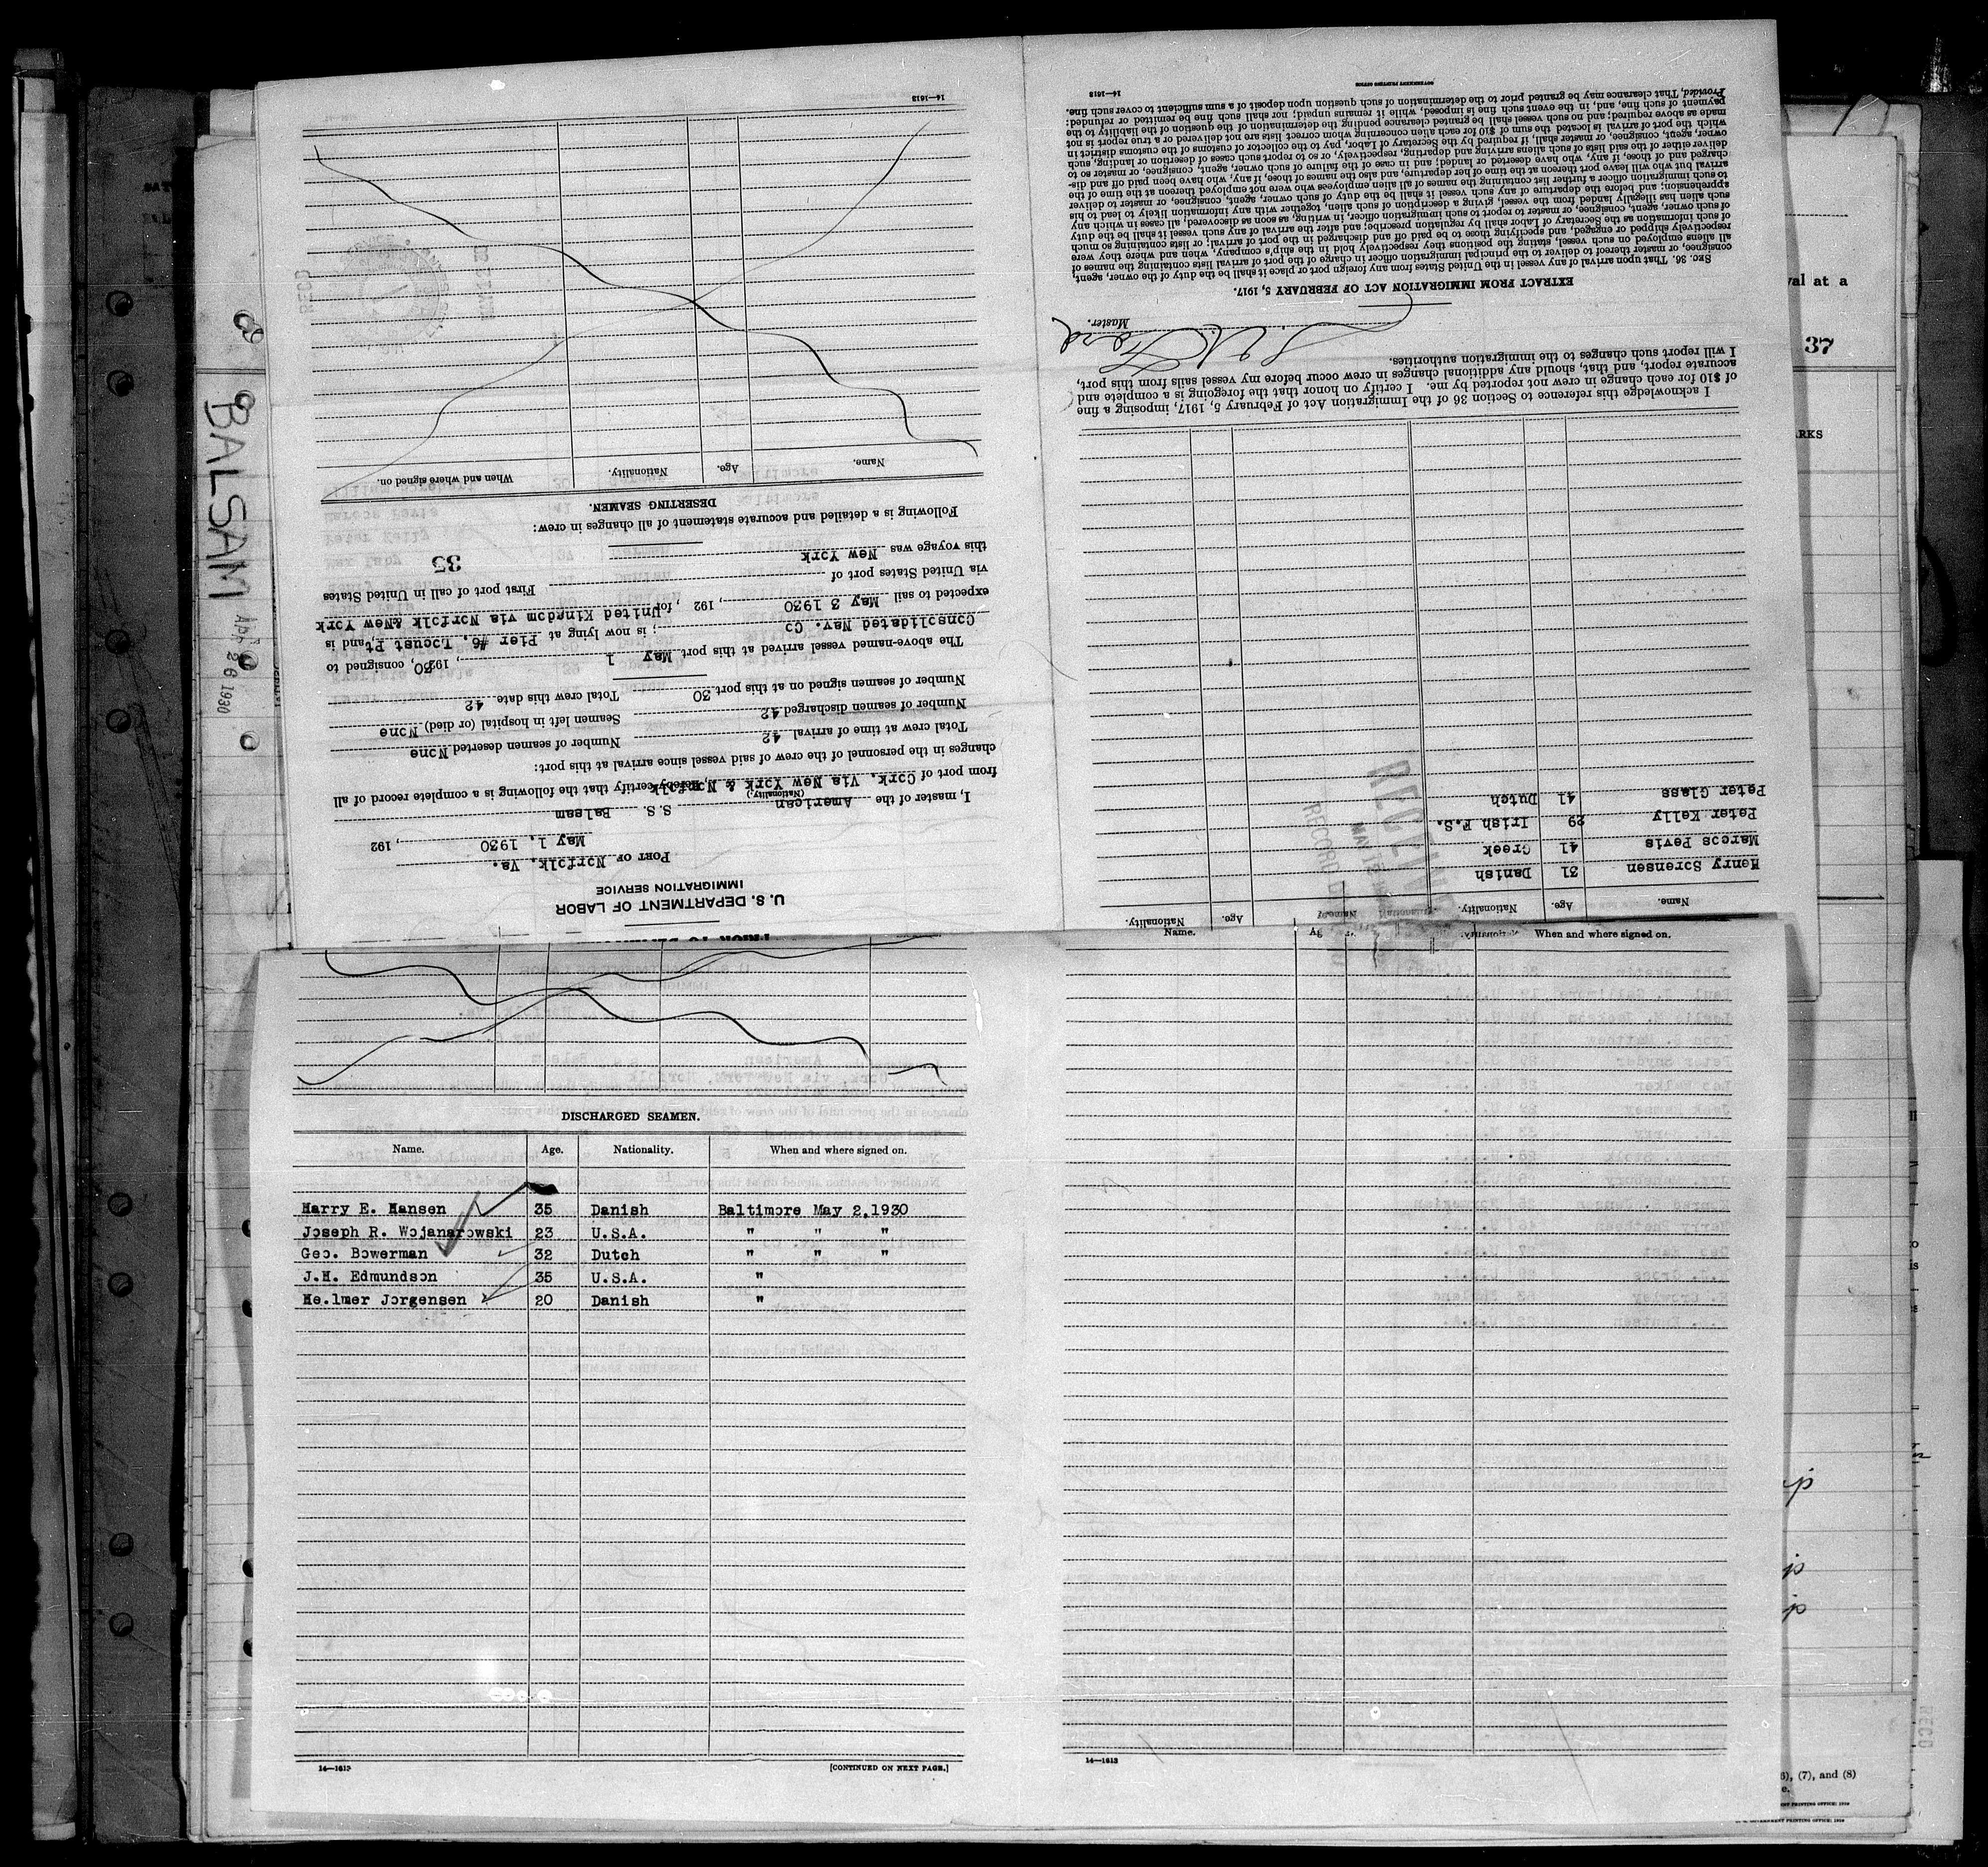 BALSAM
Apr 26 1930
val at a
37
ARKS
U. S. DEPARTMENT OF LABOR
IMMIGRATION SERVICE
PORT OF Norfolk. Va.
May 1. 1930, 192
I, master of the American S.S. Balsam
(Nationality.)
from port of Cork. Via New York & Norfolk, hereby certify that the following is a complete record of all
changes in the personnel of the crew of said vessel since arrival at this port:
Total crew at time of arrival 42 Number of seamen deserted None
Number of seamen discharged 42 Seamen left in hospital (or died) None
Number of seamen signed on at this port 30 Total crew this date 42
The above-named vessel arrived at this port May 1, 1930, consigned to
Consolidated Nav. Co; is now lying at Pier #6. Locust Pt, and is
expected to sail May 3 1930, 192, for United Kingdom via Norfolk & New York
via United States port of First port of call in United States
this voyage was New York
35
Following is a detailed and accurate statement of all changes in crew:
DESERTING SEAMEN.
Name. Age. Nationality. When and where signed on.
14—1613
Name. Age. Nationality. Name. Age. Nationality.
Henry Sorensen 31 Danish
Marcos Pevis 41 Greek
Peter Kelly 29 Irish F.S.
Peter Glass 41 Dutch
RECEIVED
I acknowledge this reference to Section 36 of the Immigration Act of February 5, 1917, imposing a fine
of $10 for each change in crew not reported by me. I certify on honor that the foregoing is a complete and
accurate report, and that, should any additional changes in crew occur before my vessel sails from this port,
I will report such changes to the immigration authorities.
Master.
EXTRACT FROM IMMIGRATION ACT OF FEBRUARY 5, 1917.
SEC. 36. That upon arrival of any vessel in the United States from any foreign port or place it shall be the duty of the owner, agent,
consignee, or master thereof to deliver to the principal immigration officer in charge of the port of arrival lists containing the names of
all aliens employed on such vessel, stating the positions they respectively hold in the ship's company, when and where they were
respectively shipped or engaged, and specifying those to be paid off and discharged in the port of arrival; or lists containing so much
of such information as the Secretary of Labor shall by regulation prescribe; and after the arrival of any such vessel it shall be the duty
of such owner, agent, consignee, or master to report to such immigration officer, in writing, as soon as discovered, all cases in which any
such alien has illegally landed from the vessel, giving a description of such alien, together with any information likely to lead to his
apprehension; and before the departure of any such vessel it shall be the duty of such owner, agent, consignee, or master to deliver
to such immigration officer a further list containing the names of all alien employees who were not employed thereon at the time of the
arrival but who will leave port thereon at the time of her departure, and also the names of those, if any, who have been paid off and dis-
charged and of those, if any, who have deserted or landed; and in case of the failure of such owner, agent, consignee, or master so to
deliver either of the said lists of such aliens arriving and departing, respectively, or so to report such cases of desertion or landing, such
owner, agent, consignee, or master shall, if required by the Secretary of Labor, pay to the collector of customs of the customs district in
which the port of arrival is located the sum of $10 for each alien concerning whom correct lists are not delivered or a true report is not
made as above required; and no such vessel shall be granted clearance pending the determination of the question of the liability to the
payment of such fine, and, in the event such fine is imposed, while it remains unpaid; nor shall such fine be remitted or refunded:
Provided, That clearance may be granted prior to the determination of such question upon deposit of a sum sufficient to cover such fine.
14—1613 GOVERNMENT PRINTING OFFICE
DISCHARGED SEAMEN.
Name. Age. Nationality. When and where signed on.
Harry E. Hansen 35 Danish Baltimore May 2,1930
Joseph R. Wojanarowski 23 U.S.A. " " "
Geo. Bowerman 32 Dutch " " "
J.H. Edmundson 35 U.S.A. "
He.lmer Jorgensen 20 Danish "
14—1613 [CONTINUED ON NEXT PAGE.]
Name. When and where signed on.
14—1613
6), (7), and (8)